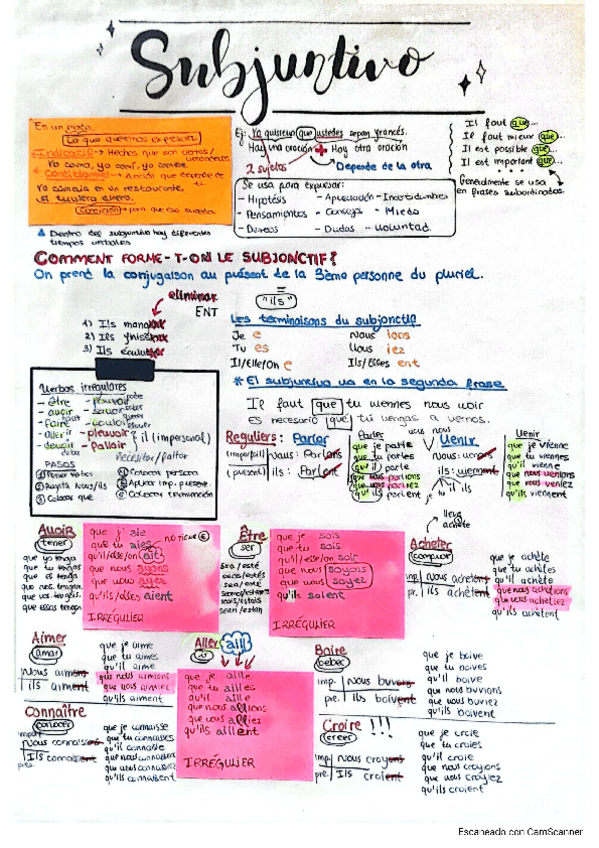 Subjuntivo
Es un modo.
Lo que queremos expresar
Indicatif → Hechos que son ciertos/
verdaderos
Yo como, yo comí, yo comeré.
Conditionnel → Acción que depende de
ti
Yo comería en un restaurante,
si tuviera dinero.
Condición → para que eso suceda
Dentro del subjuntivo hay diferentes
tiempos verbales
Ej: Yo quisiera que ustedes sepan francés.
Hay una oración + Hay otra oración
2 sujetos
Depende de la otra
Se usa para expresar:
- Hipótesis - Apreciación - Incertidumbres
- Pensamientos - Consejos - Miedo
- Deseos - Dudas - Voluntad.
Il faut que...
Il faut mieux que...
Il est possible que...
Il est important que...
Generalmente se usa
en frases subordinadas.
COMMENT FORME-T-ON LE SUBJONCTIF?
On prend la conjugaison au présent de la 3ème personne du pluriel.
"ils"
eliminar
ENT
1) Ils mangent
2) Ils finissent
3) Ils écoutent
Les terminaisons du subjonctif
Je e Nous ions
Tu es Vous iez
Il/Elle/On e Ils/Elles ent
* El subjuntivo va en la segunda frase
Il faut que tu viennes nous voir
Es necesario que tu vengas a vernos.
Verbos irregulares
- être - pouvoir
- avoir - savoir
- faire - vouloir
- aller - pleuvoir
- devoir - falloir
il (impersonal)
necesitar/faltar
PASOS
Reguliers: Parler
(imparfait) nous: Parlons
(present) ils: Parlent
Parler
que je parle
que tu parles
qu'il parle
que nous parlions
que vous parliez
qu'ils parlent
Venir
Nous: venons
ils: viennent
je tu il ils
Venir
que je vienne
que tu viennes
qu'il vienne
que nous venions
que vous veniez
qu'ils viennent
Avoir
tener
que yo tenga
que tu tengas
que el tenga
que nos. tengamos
que vos. tengáis
que ellos tengan
que j'aie
que tu aies
qu'il/elle/on ait
que nous ayons
que vous ayez
qu'ils/elles aient
NO TIENE e
IRRÉGULIER
Être
ser
sea/esté
seas/estés
sea/esté
seamos/estemos
seáis/estéis
sean/estén
que je sois
que tu sois
qu'il/elle/on soit
que nous soyons
que vous soyez
qu'ils soient
IRRÉGULIER
lleva
achète
Acheter
comprar
imp. nous achetons
pr. ils achètent
que je achète
que tu achètes
qu'il achète
que nous achetions
que vous achetiez
qu'ils achètent
Aimer
amar
Nous aimons
ils aiment
que je aime
que tu aimes
qu'il aime
que nous aimions
que vous aimiez
qu'ils aiment
Aller
ir
aill
que je aille
que tu ailles
qu'il aille
que nous allions
que vous alliez
qu'ils aillent
IRRÉGULIER
Boire
beber
imp. Nous buvons
pre. ils boivent
que je boive
que tu boives
qu'il boive
que nous buvions
que vous buviez
qu'ils boivent
Connaître
conocer
Nous connaissons
Ils connaissent
pres.
que je connaisse
que tu connaisses
qu'il connaisse
que nous connaissions
que vous connaissiez
qu'ils connaissent
Croire !!!
creer
imp. Nous croyons
pre. Ils croient
que je croie
que tu croies
qu'il croie
que nous croyions
que vous croyiez
qu'ils croient
Escaneado con CamScanner